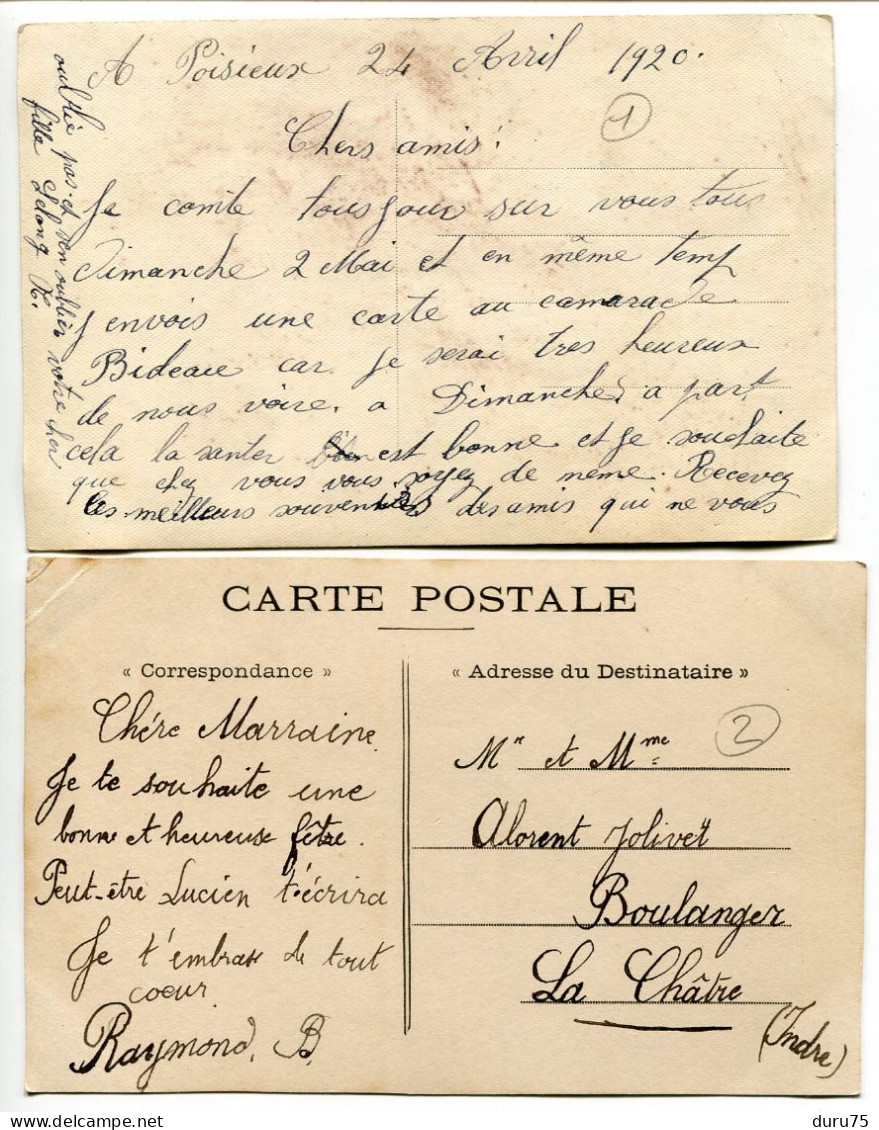 A Poisieux 24 Avril 1920.
1
Chers amis!
Je comte tousjour sur vous tous
Dimanche 2 Mai et en même temp
J envois une carte au camarade
Bideau car Je serai tres heureux
de nous voire. a Dimanche, a part
cela la santer est bonne et Je souhaite
que chez vous vous soyez de même. Recevez
les meilleurs souvenirs des amis qui ne vous
oublie pas et s'en oublier votre cher
fille Lelong K.
CARTE POSTALE
« Correspondance »
« Adresse du Destinataire »
Chére Marraine.
Je te souhaite une
bonne et heureuse fête.
Peut-être Lucien t'écrira
Je t'embrase de tout
coeur
Raymond. B.
2
Mr et Mme
Alorent Jolivet
Boulanger
La Châtre
(Indre)
duru75